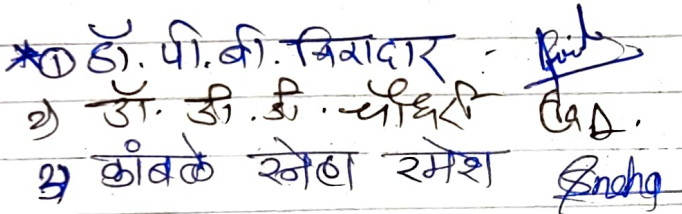 *① डॉ. पी.बी. बिरादार -
२) डॉ. डी.डी. चौधरी
३) कांबळे स्नेहा रमेश Sneha